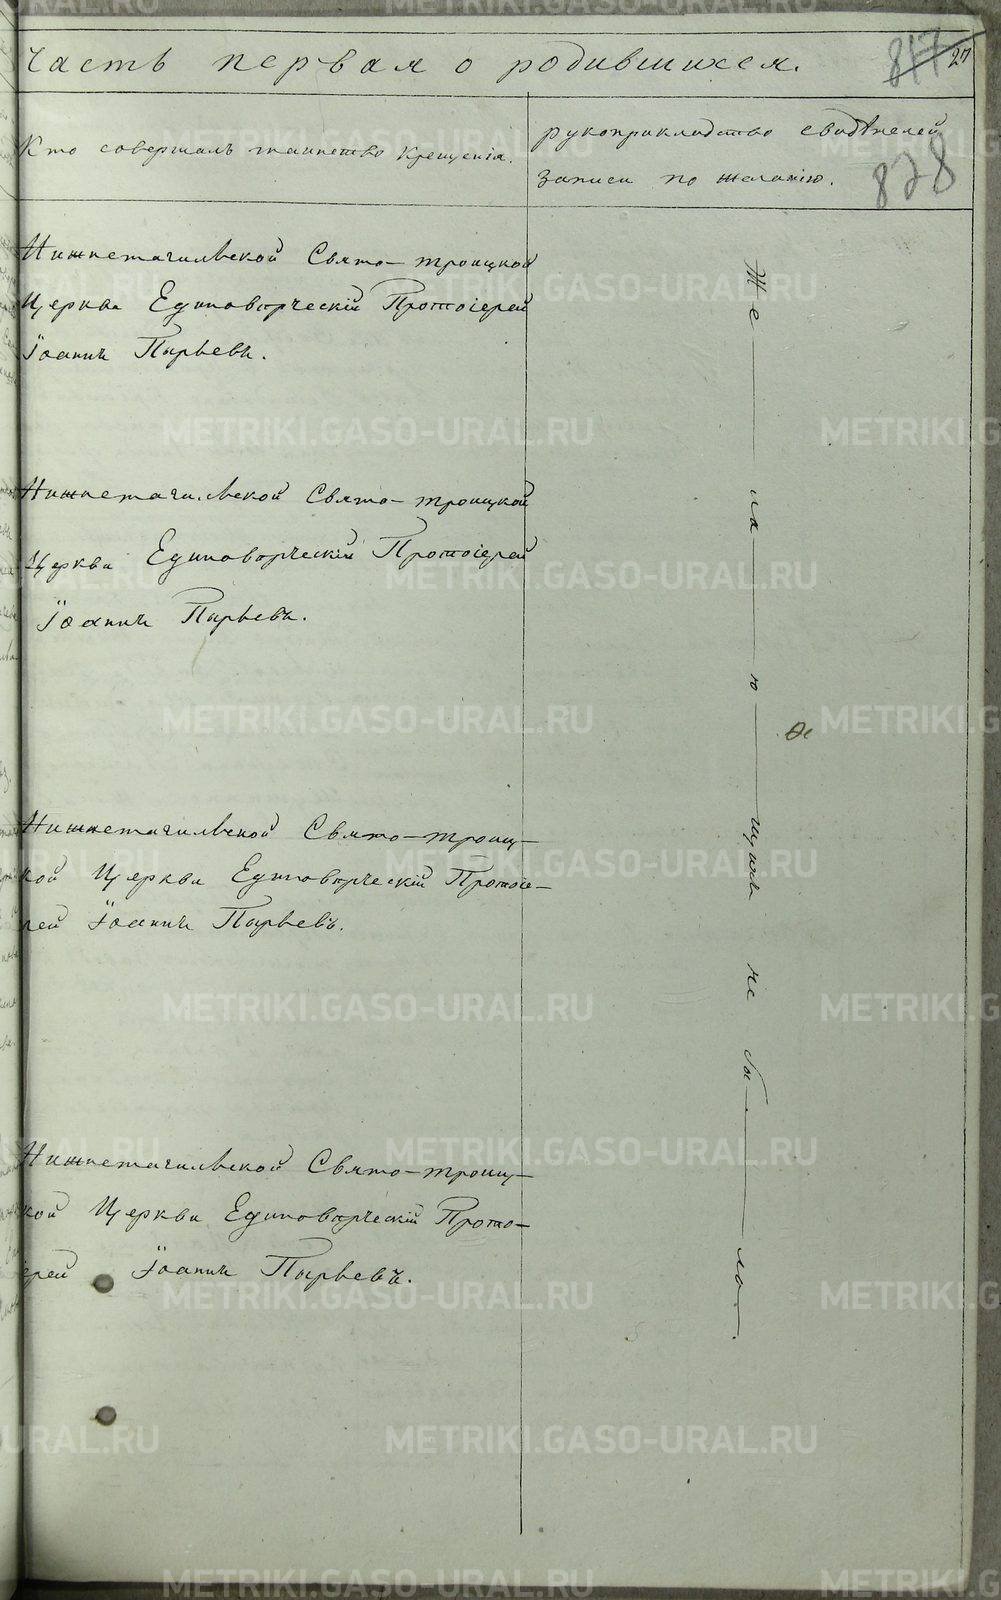 Часть первая о родившихся.
817 27
Кто совершалъ таинство крещенія.
рукоприкладство свидѣтелей
записи по желанію.
828
Нижнетагильской Свято-троицкой
Церкви Единовѣрческій Протоіерей
Іоаннъ Пырьевъ.
Нижнетагильской Свято-троицкой
Церкви Единовѣрческій Протоіерей
Іоаннъ Пырьевъ.
Нижнетагильской Свято-троиц-
кой Церкви Единовѣрческій Протоіе-
рей Іоаннъ Пырьевъ.
Нижнетагильской Свято-троиц-
кой Церкви Единовѣрческій Прото-
ерей Іоаннъ Пырьевъ.
Же — ла — ю — щихъ не бы — ло.
METRIKI.GASO-URAL.RU